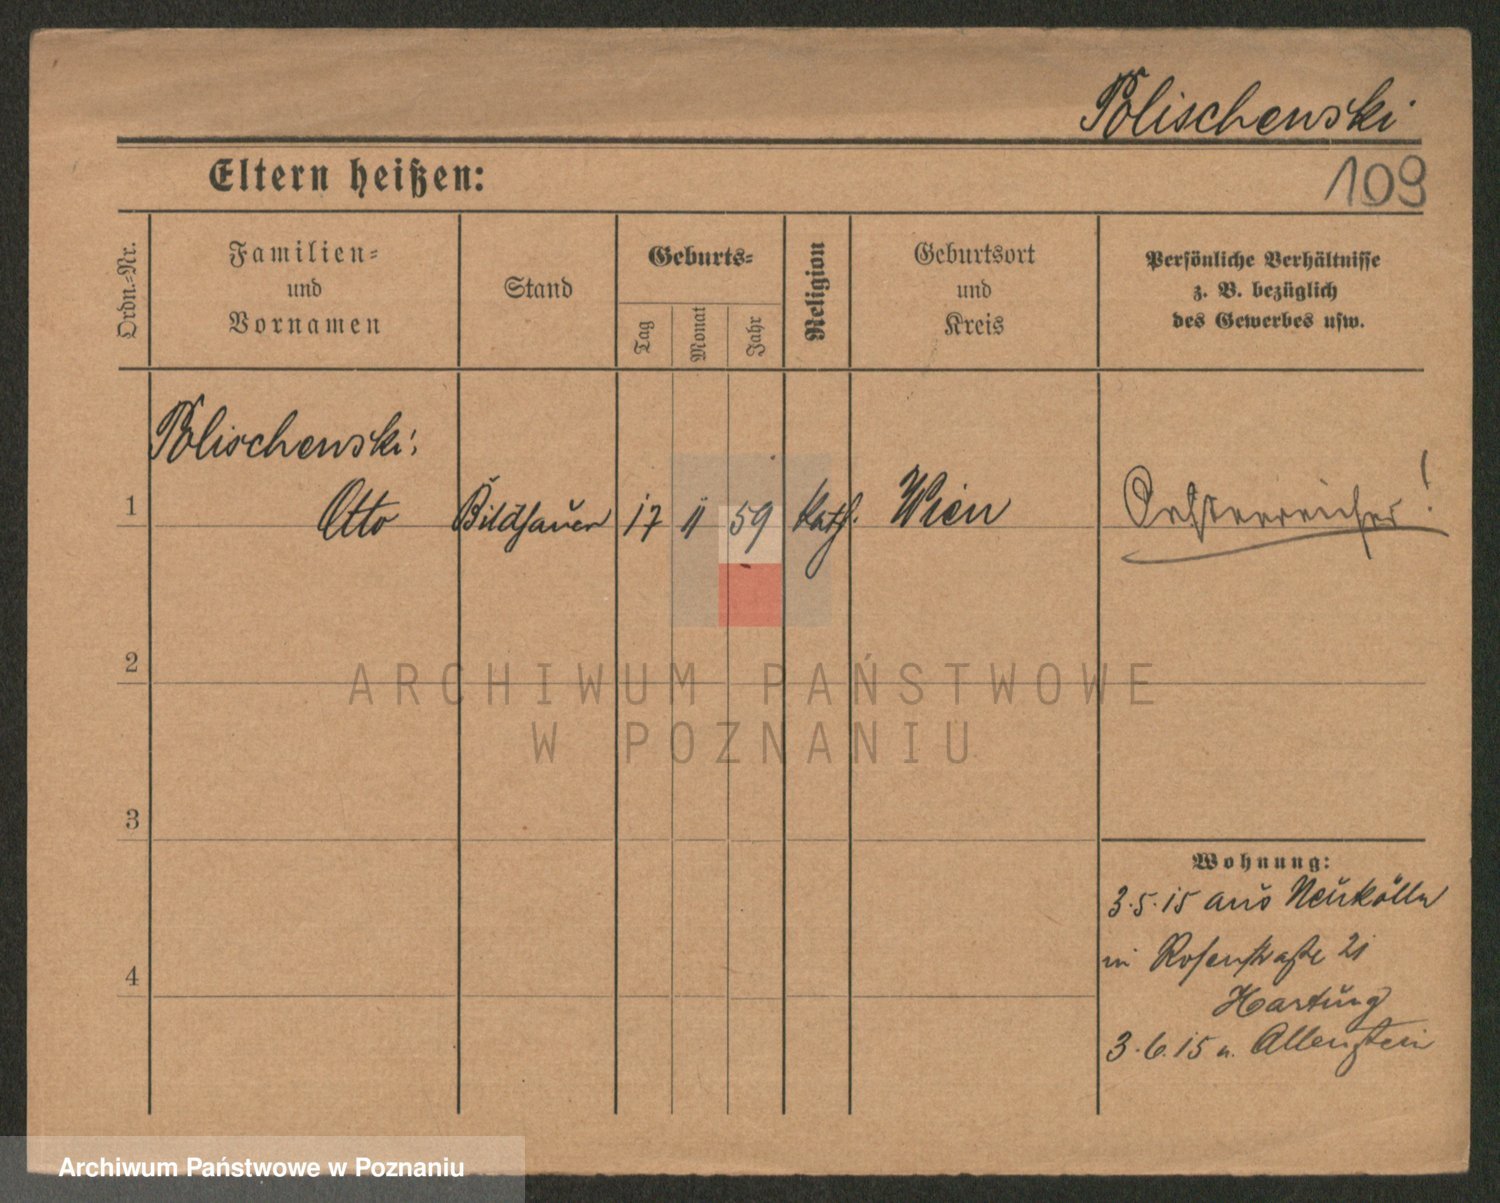 Polischenski
Eltern heißen:
109
Ordn.-Nr.
Familien-
und
Vornamen
Stand
Geburts-
Tag
Monat
Jahr
Religion
Geburtsort
und
Kreis
Persönliche Verhältnisse
z. B. bezüglich
des Gewerbes usw.
Polischenski,
1 Otto Bildhauer 17 11 59 kath. Wien Oesterreicher!
2
ARCHIWUM PAŃSTWOWE
W POZNANIU
3
Wohnung:
3.5.15 aus Neukölln
4
in Rosenstraße 21
Hartung
3.6.15 n. Allenstein
Archiwum Państwowe w Poznaniu